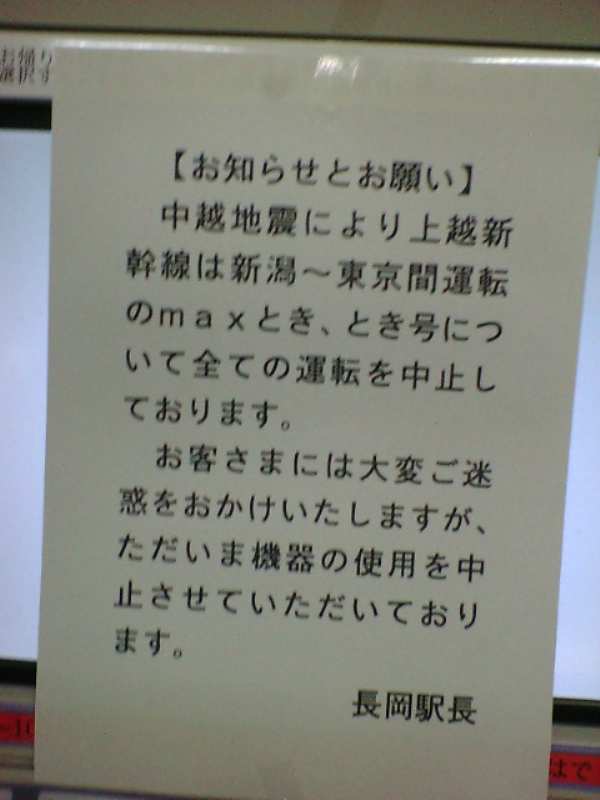 お帰り
選択す
【お知らせとお願い】
中越地震により上越新
幹線は新潟～東京間運転
のｍａｘとき、とき号につ
いて全ての運転を中止し
ております。
お客さまには大変ご迷
惑をおかけいたしますが、
ただいま機器の使用を中
止させていただいており
ます。
長岡駅長
まで